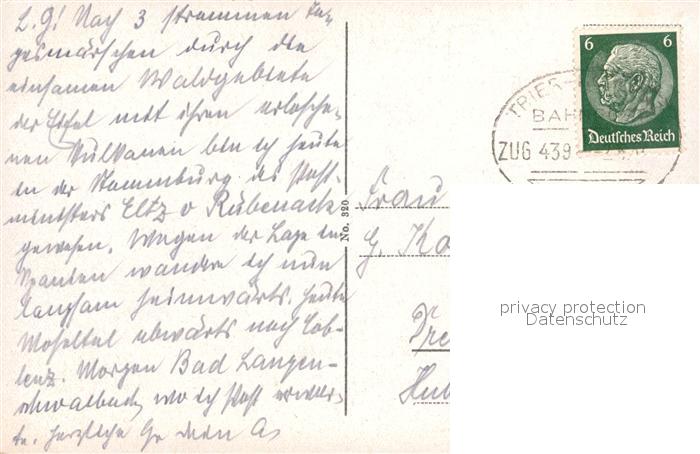 L. G! Nach 3 strammen Ta-
gesmärschen durch die
einsamen Waldgebiete
der Eifel mit ihren erlosche-
nen Vulkanen bin ich heute
in der Stammburg des Post-
ministers Eltz v Rübenack
gewesen. Wegen der Lage in
Spanien wandere ich nun
langsam heimwärts. Heute
Moseltal abwärts nach Cob-
lenz. Morgen Bad Langen-
schwalbach, wo ich Post erwar-
te. Herzliche Gr Dein
No. 320
6 6
Deutsches Reich
TRIER
BAH
ZUG 439
Frau
G. Ko
Hub
privacy protection
Datenschutz